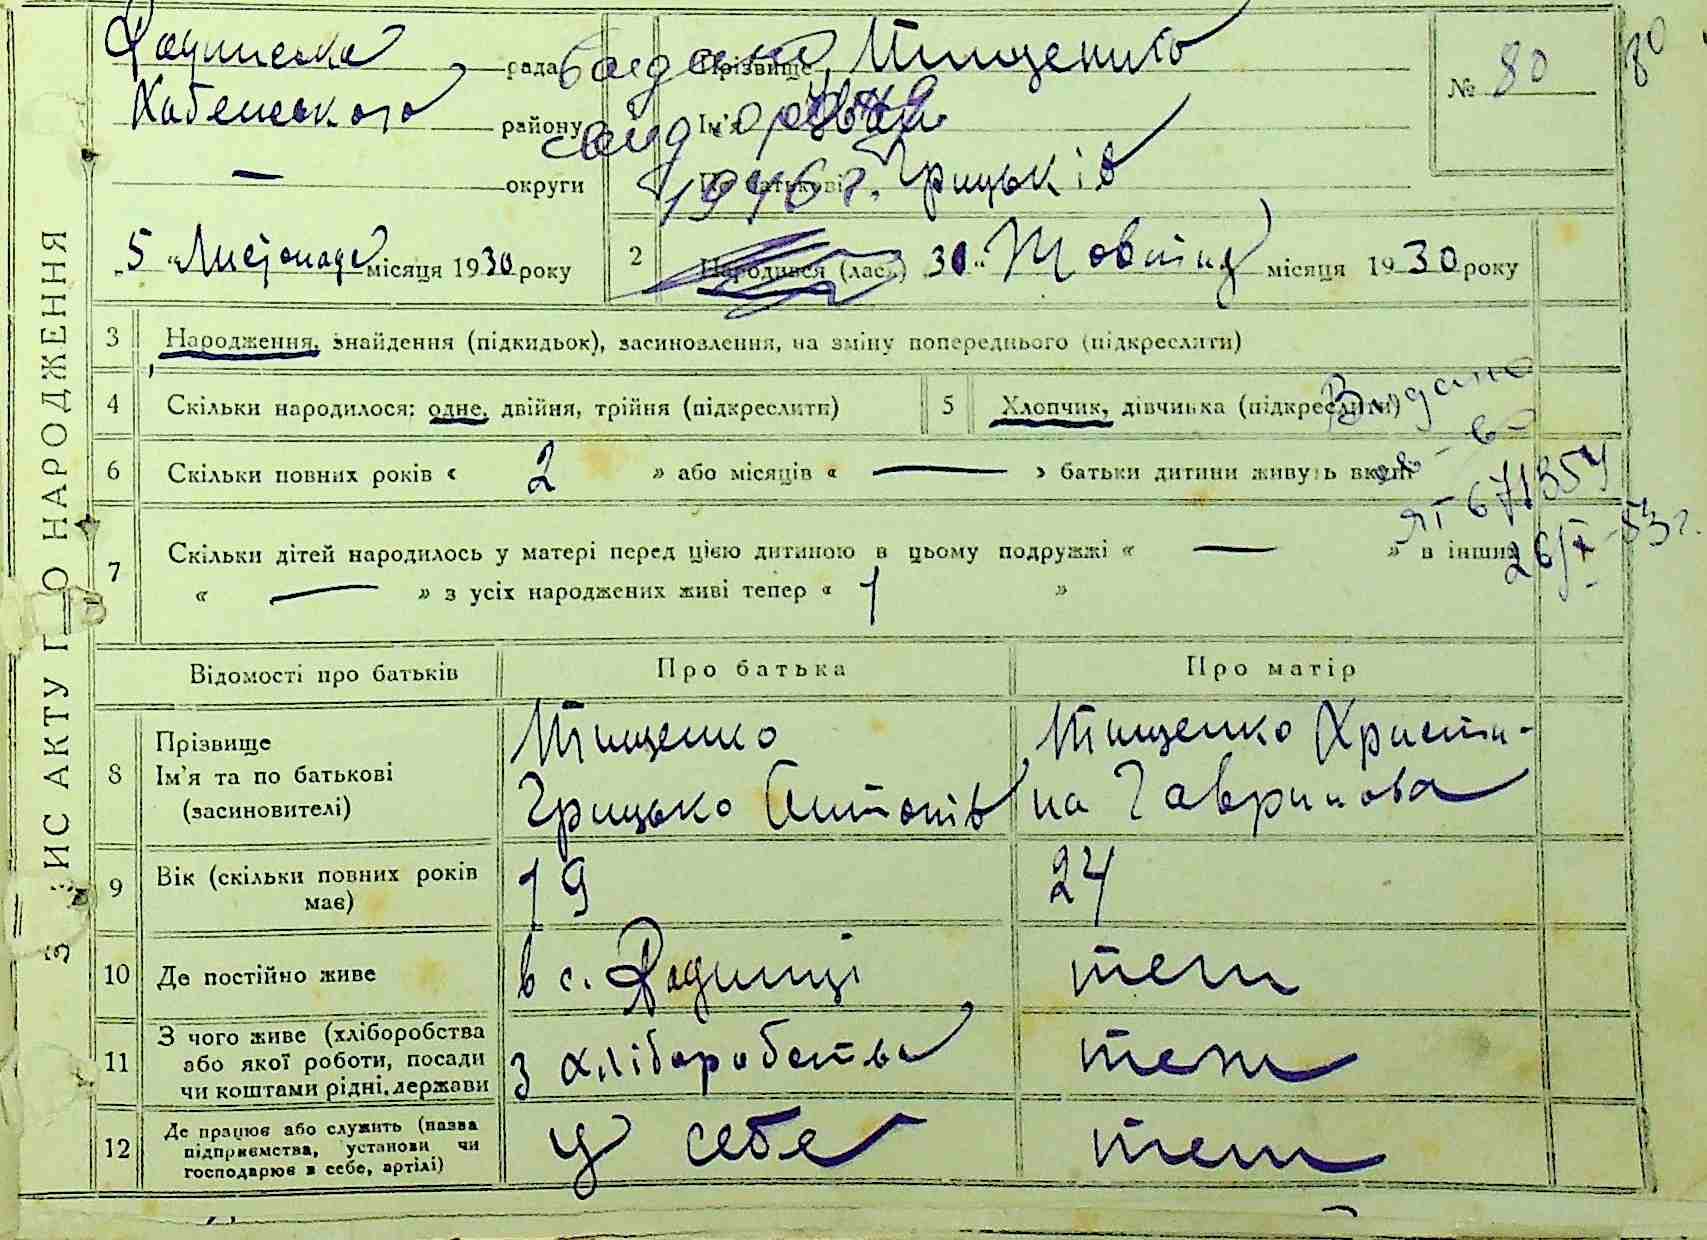 ЗАПИС АКТУ ПРО НАРОДЖЕННЯ
рада
Хабенського району
— округи
"5" Листопада місяця 1930 року
Прізвище Тищенко
Ім'я
По батькові Грицьків
№ 80
80
1946 г.
2 Народився (лась) 30 " Жовтня місяця 1930 року
3 Народження, знайдення (підкидьок), засиновлення, на зміну попереднього (підкреслити)
4 Скільки народилося: одне, двійня, трійня (підкреслити)
5 Хлопчик, дівчинка (підкреслити)
6 Скільки повних років « 2 » або місяців « — » батьки дитини живуть вкупі
7 Скільки дітей народилось у матері перед цією дитиною в цьому подружжі « — » в інших
« — » з усіх народжених живі тепер « 1 »
Видано
ЯГ 671354
26/X-53 г.
Відомості про батьків
Про батька
Про матір
8 Прізвище
Ім'я та по батькові
(засиновителі)
Тищенко
Грицько Антонів
Тищенко Христи-
на Гаврилова
9 Вік (скільки повних років
має)
19
24
10 Де постійно живе
в с.
теж
11 З чого живе (хліборобства
або якої роботи, посади
чи коштами рідні, держави
з хліборобства
теж
12 Де працює або служить (назва
підприємства, установи чи
господарює в себе, артілі)
у себе
теж